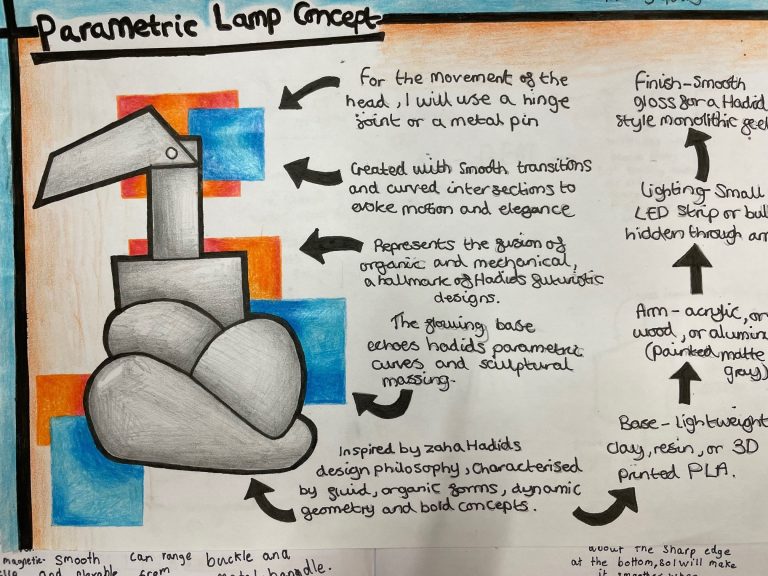 Parametric Lamp Concept
For the movement of the
head, I will use a hinge
joint or a metal pin
Created with smooth transitions
and curved intersections to
evoke motion and elegance
Represents the fusion of
organic and mechanical,
a hallmark of Hadids futuristic
designs.
The flowing base
echoes hadids parametric
curves and sculptural
massing.
Inspired by zaha Hadids
design philosophy, characterised
by fluid, organic forms, dynamic
geometry and bold concepts.
Finish-Smooth
gloss for a Hadid
style monolithic
Lighting-Small
LED strip or
hidden through
Arm - acrylic, or
wood, or
(painted matte
gray)
Base - Lightweight
clay, resin, or 3D
printed PLA.
magnetic. smooth can range buckle and
and from handle.
about the sharp edge
at the bottom, so I will make
it smoother when